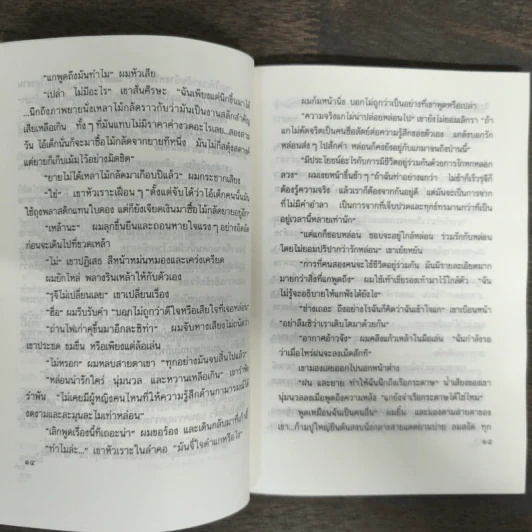 "แกพูดถึงมันทำไม" ผมหัวเสีย
"เปล่า ไม่มีอะไร" เขาสั่นศีรษะ "ฉันเพียงแต่นึกขึ้นมาได้
...นึกถึงภาพยายนั่งเหลาไม้กลัดราวกับว่ามันเป็นงานสลักสำคัญ
เสียเหลือเกิน ทั้งๆ ที่มันแทบไม่มีราคาค่างวดอะไรเลย...สองสาม
วัน ไอ้เด็กนั้นก็จะมาซื้อไม้กลัดจากยายที่หนึ่ง มันไม่กี่สตุ้งสตางค์
แต่ยายก็เก็บเม้มไว้อย่างมิดชิด"
"ยายไม่ได้เหลาไม้กลัดมาเกือบปีแล้ว" ผมกระชากเสียง
"ใช่" เขาหัวเราะเฝื่อน ๆ "ตั้งแต่จับได้ว่าไอ้เด็กคนนั้นมัน
ใช้ถุงพลาสติกแทนใบตอง แต่ก็ยังเจียดเงินมาซื้อไม้กลัดยายอยู่อีก"
"เหล้านะ" ผมลุกขึ้นยืนและถอนหายใจแรง ๆ อย่างอึดอัด
ก่อนจะเดินไปที่ขวดเหล้า
"ไม่" เขาปฏิเสธ สีหน้าหม่นหมองและเคร่งเครียด
ผมยักไหล่ พลางรินเหล้าให้กับตัวเอง
"รุจีไม่เปลี่ยนเลย" เขาเปลี่ยนเรื่อง
"ฮื่อ" ผมรีบรับคำ "บอกไม่ถูกว่าดีใจหรือเสียใจที่เจอหล่อน"
"ถ่านไฟเก่าคุขึ้นมาอีกละซีท่า" ผมจับทางเสียงไม่ถนัดว่า
เขาประชด ขมขื่น หรือเพียงแต่ล้อเล่น
"ไม่หรอก" ผมหลบสายตาเขา "ทุกอย่างมันจบสิ้นไปแล้ว"
"หล่อนน่ารักใคร่ นุ่มนวล และหวานเหลือเกิน" เขารำพึง
รำพัน "ไม่เคยมีผู้หญิงคนไหนที่ให้ความรู้สึกด้านกามารมณ์ได้
งดงามและละมุนละไมเท่าหล่อน"
"เลิกพูดเรื่องนี้ทีเถอะน่า" ผมขอร้อง และเดินกลับมาที่เก้าอี้
"ทำไมล่ะ..." เขาหัวเราะในลำคอ "มันจี้ใจดำแกหรือไง"
๑๔
ผมก้มหน้านิ่ง บอกไม่ถูกว่าเป็นอย่างที่เขาพูดหรือเปล่า
"ความจริงแกไม่น่าปล่อยหล่อนไป" เขายังไม่ยอมเลิกรา "ถ้า
แกไม่ดัดจริตเป็นคนซื่อสัตย์ต่อความรู้สึกของตัวเอง แกลังบอกรัก
หล่อนส่ง ๆ ไปสักคำ หล่อนก็คงยังอยู่กับแกมาจนถึงป่านนี้"
"มีประโยชน์อะไรกับการมีชีวิตอยู่ร่วมกันด้วยการโกหกหลอก
ลวง" ผมเงยหน้าขึ้นช้า ๆ "แกก็รู้ดีพอ ๆ กับฉันว่า ไม่ช้าก็เร็วรุจีก็
ต้องรู้ความจริง แล้วเราก็ต้องจากกันอยู่ดี แต่มันจะเป็นการจาก
ที่ไม่มีคำอำลา เป็นการจากที่เจ็บปวดและทุกข์ทรมานกว่าที่เป็น
อยู่เวลานี้หลายเท่านัก"
"แต่แกก็ชอบหล่อน ชอบจะอยู่ใกล้หล่อน ร่วมรักกับหล่อน
โดยไม่ยอมปริปากว่ารักหล่อน" เขาเย้ยหยัน
"การที่คนสองคนจะใช้ชีวิตอยู่ร่วมกัน มันมีรายละเอียดมาก
มายกว่าสิ่งที่แกพูดถึง" ผมใช้เท้าเขี่ยรองเท้ามาไว้ใกล้ตัว "ฉัน
ไม่รู้จะอธิบายให้แกฟังได้ยังไง"
"ช่างเถอะ ถึงอย่างไรฉันก็คิดว่าฉันเข้าใจแก" เขาเบือนหน้า
"อย่าลืมซิว่าเราเติบโตมาด้วยกัน"
"อากาศอ้าวจัง" ผมคลึงแก้วเหล้าในมือเล่น "ฉันกำลังรอ
ว่าเมื่อไหร่ฝนจะลงเม็ดสักที"
เขามองเลยออกไปนอกหน้าต่าง
"ฝน และยาย ทำให้ฉันนึกถึงเรือกระดาษ" น้ำเสียงของเขา
นุ่มนวลลงเมื่อพูดถึงความหลัง "แกยังจำเรือกระดาษได้ใช่ไหม"
"พูดเหมือนฉันเป็นคนอื่น" ผมยิ้ม และมองตามสายตาของ
เขา...ก้ามปูใหญ่ยืนต้นสงบนิ่งกลางแสงแดดยามบ่าย ลมสงัด ทุก
๑๕